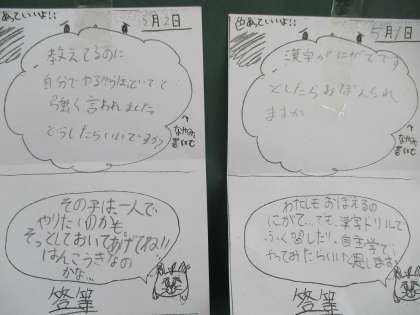 ぬっていいよ!!
5月2日
教えてるのに
自分でやるからはいでてと
強く言われました
どうしたらいいですか?
なやみ
書いてね
その子は一人で
やりたいのかも
そっとしておいてあげてね!!
はんこうきなの
かな…
答軍
ぬっていいよ!!
5月1日
漢字がにがてです
どしたらおぼえられ
ますか
なやみ
書いて
わたしもおぼえるの
にがて…でも、漢字ドリルで
ふく習したり、自主学で
やってみたらいいと思します!
答軍